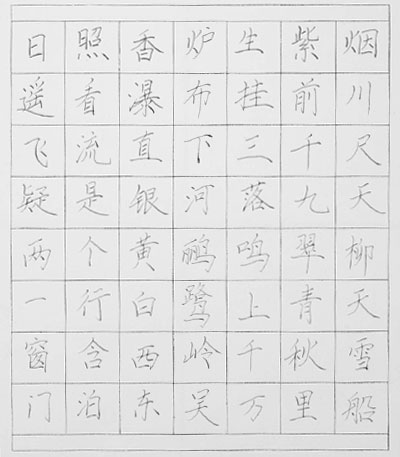 日照香炉生紫烟
遥看瀑布挂前川
飞流直下三千尺
疑是银河落九天
两个黄鹂鸣翠柳
一行白鹭上青天
窗含西岭千秋雪
门泊东吴万里船